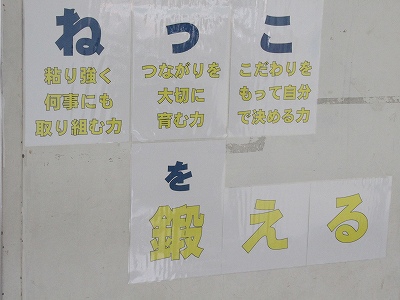 ねっこ
粘り強く
何事にも
取り組む力
つながりを
大切に
育む力
こだわりを
もって自分
で決める力
を
鍛える